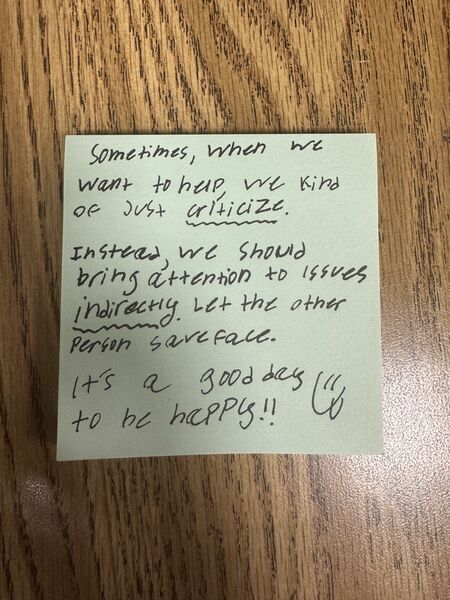 Sometimes, when we
want to help, we kind
of just criticize.
Instead, we should
bring attention to issues
indirectly. Let the other
Person save face.
It's a good day
to be happy!!